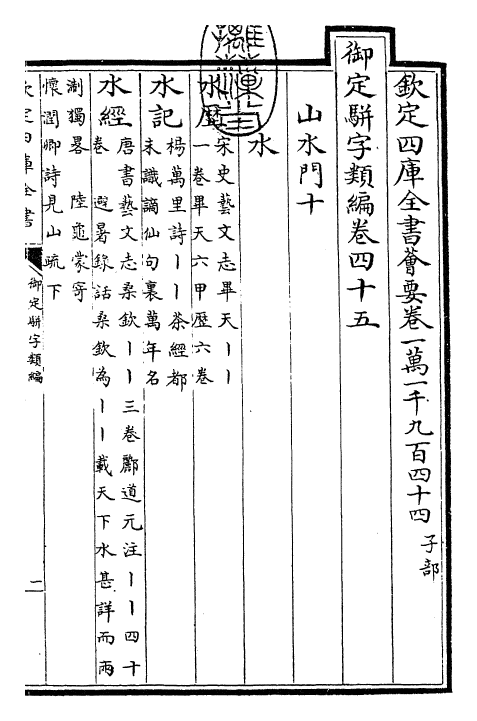 欽定四庫全書薈要卷一萬一千九百四十四 子部
御定駢字類編卷四十五
山水門十
水
水歴 宋史藝文志畢天丨丨
一卷畢天六甲歴六卷
水記 楊萬里詩丨丨茶經都
未識謫仙句裏萬年名
水經 唐書藝文志桑欽丨丨三卷酈道元注丨丨四十
卷 避暑錄話桑欽為丨丨載天下水甚詳而兩
浙獨畧 陸龜蒙寄
懷潤卿詩見山疏下
欽定四庫全書
御定駢字類編
二